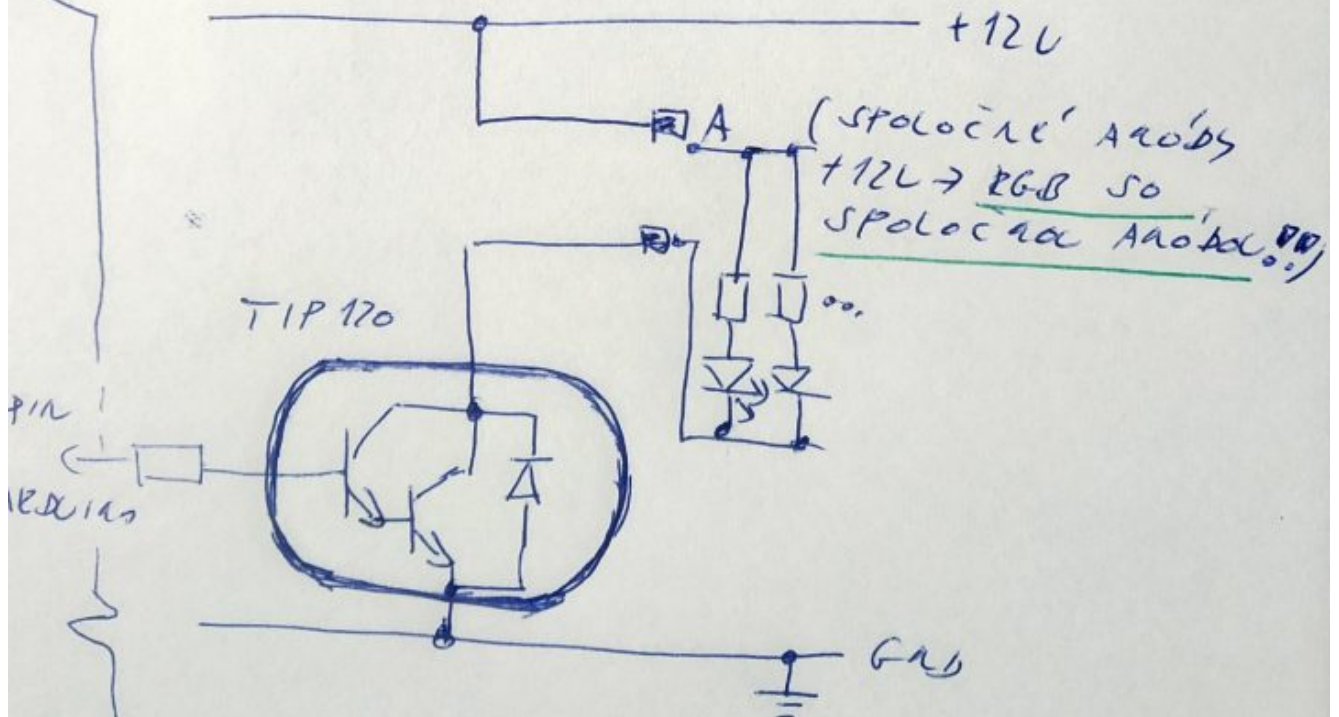 +12V
A (SPOLOČNÉ ANÓDY
+12V → RGB SO
SPOLOČNOU ANÓDOU!!)
TIP 120
PIN
ARDUINO
GND